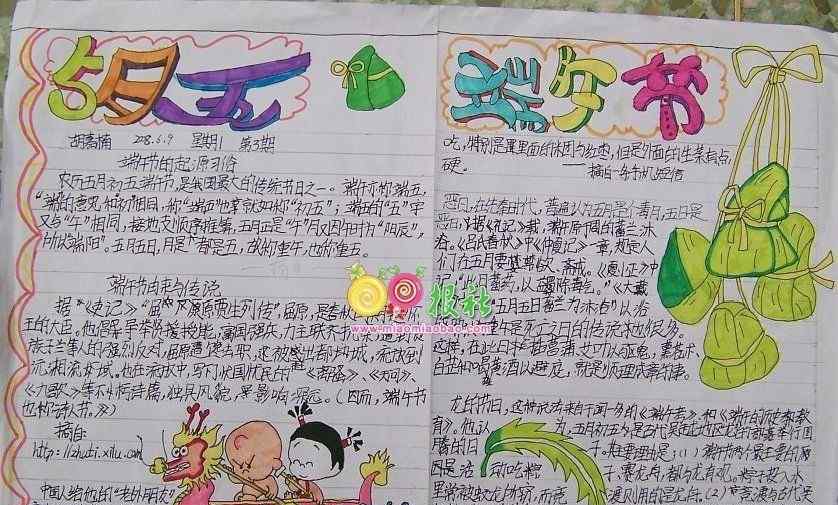 5月五
胡嘉楠 2008.6.9 星期1 第3期
端午节的起源习俗
农历五月初五端午节,是我国最大的传统节日之一。端午亦称端五,
"端"的意思和"初"相同,称"端五"也就如称"初五";端五的"五"字
又与"午"相同,按地支顺序推算,五月正是"午"月。又因午时为"阳辰",
所以端阳"。五月五日,月、日都是五,故称重午,也称重五。
端午节的由来与传说
据《史记》"屈原贾生列传",屈原,是春秋
王的大臣。他倡导举贤授能,富国强兵,力主联齐抗秦,遭到贵
族子兰等人的强烈反对,屈原遭谗去职,被赶出都城,流放到
沅、湘流域。他在流放中,写下了忧国忧民的《离骚》、《天问》、
《九歌》等不朽诗篇,独具风貌,影响深远。(因而,端午节
也称诗人节。)
摘自:
http://zhuti.xilu.com
中国人给他的"老外朋友"
端午节
吃,特别是里面的
硬。
——摘自手机短信
恶日,在先秦时代,普遍认为五月是个毒月,五日是
恶日,
《吕氏春秋》中《仲夏记》一章,规定人
们在五月要禁欲、斋戒。《夏小正》中
蓄药,以蠲除毒气。"《大戴
五月五日蓄兰为沐浴"以浴
是死亡之日的传说也很多。
这样,在此日插菖蒲、艾叶以驱鬼,薰苍术、
白芷和喝雄黄酒以避疫,就是顺理成章的事。
龙的节日,这种说法来自于闻一多的《端午考》和《端午的历史教
育》。他认为,五月初五是古代吴越地区龙的部落举行图
腾的日子,其主要理由是:(1)端午节两个最主要的
吃粽子、赛龙舟,都与龙有关。粽子投入水
里常被蛟龙所窃,而竞渡则用的是龙舟。(2)竞渡与古代吴
报社
www.miaomiaobao.com